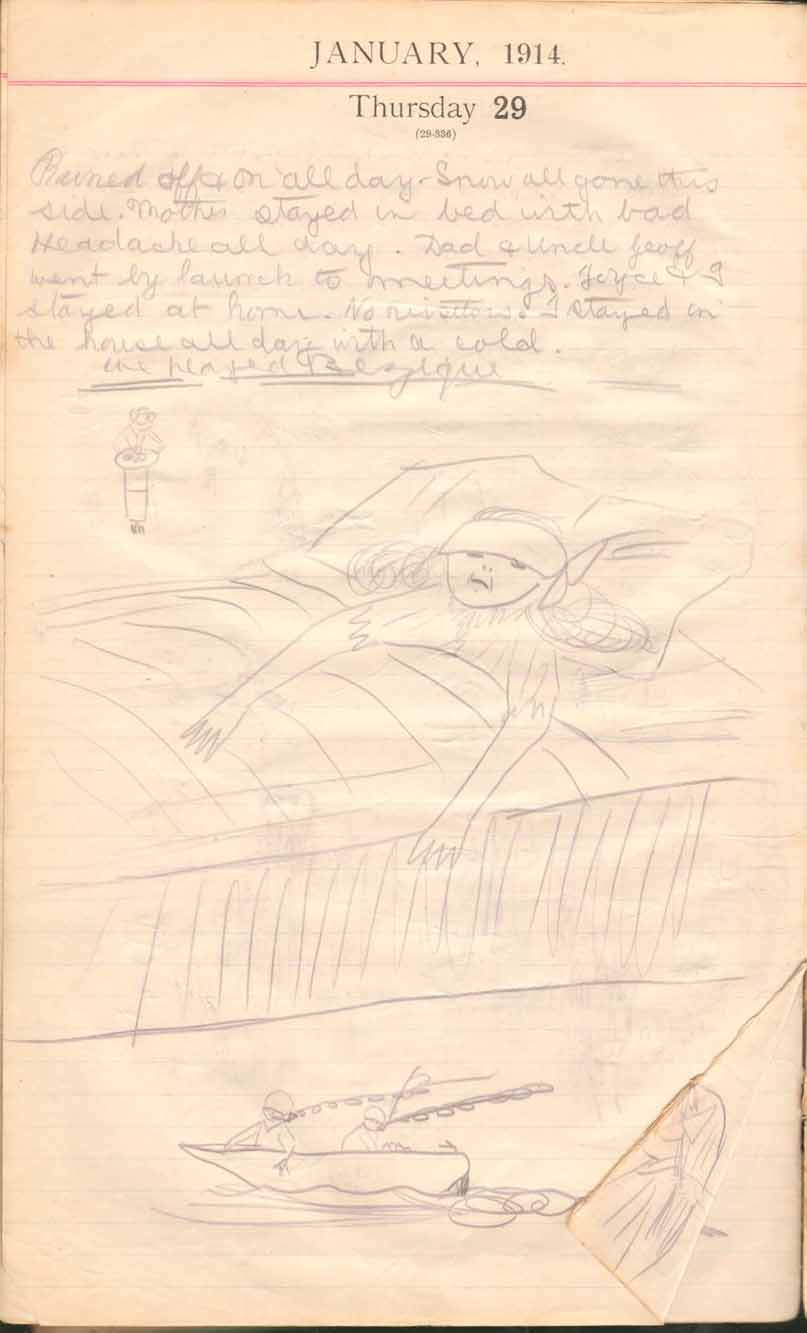 JANUARY, 1914.
Thursday 29
(29-336)
Rained off & on all day - Snow all gone this
side. Mother stayed in bed with bad
Headache all day. Dad & Uncle Geoff
went by launch to meetings. Joyce & I
stayed at home. No visitors. I stayed in
the house all day with a cold.
We played Bezique